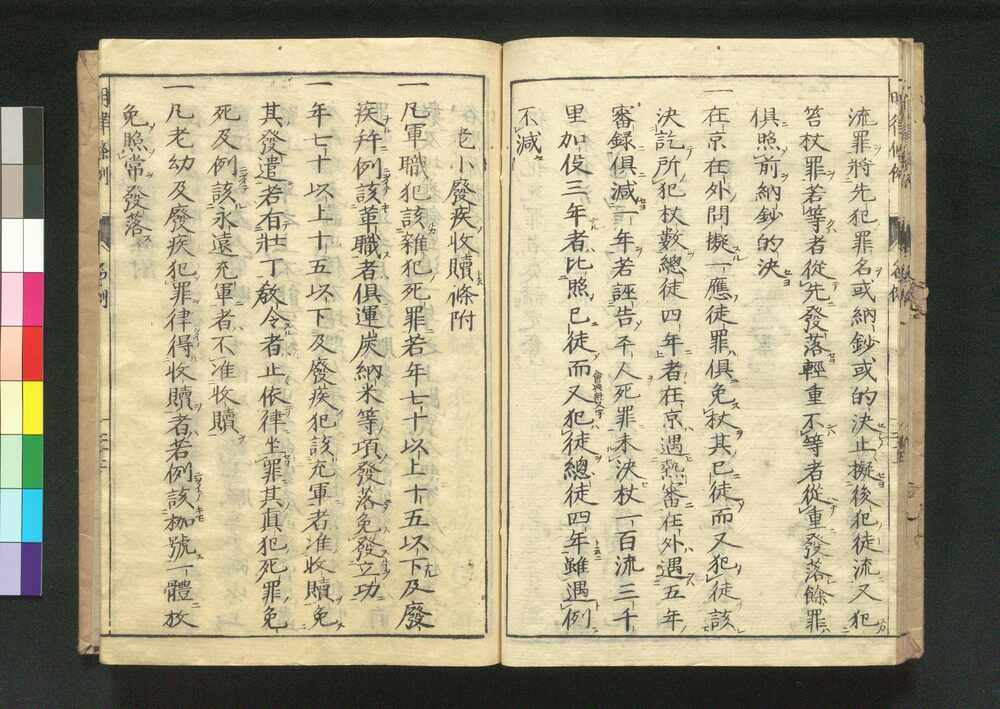 流罪將先犯罪名或納鈔或的決止擬後犯徒流又犯
笞杖罪若等者從先發落輕重不等者從重發落餘罪
俱照前納鈔的決
一在京在外問擬一應徒罪俱免杖其已徒而又犯徒該
決訖所犯杖數總徒四年者在京遇熱審在外遇五年
審録俱減一年若誣告平人死罪未決杖一百流三千
里加伇三年者比照已徒而又犯徒總徒四年雖遇例
不減
老小廢疾收贖條附
一凡軍職犯該雜犯死罪若年七十以上十五以下及廢
疾幷例該革職者俱運炭納米等項發落免發立功
一年七十以上十五以下及廢疾犯該充軍者准收贖免
其發遣若有壯丁教令者止依律坐罪其眞犯死罪免
死及例該永遠充軍者不准收贖
一凡老幼及廢疾犯罪律得收贖者若例該枷號一體放
免照常發落
名例